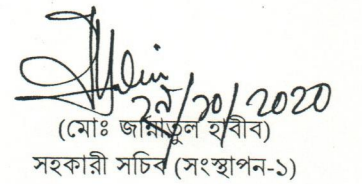 ২৯/১০/2020
(মোঃ জান্নাতুল হাবীব)
সহকারী সচিব (সংস্থাপন-১)